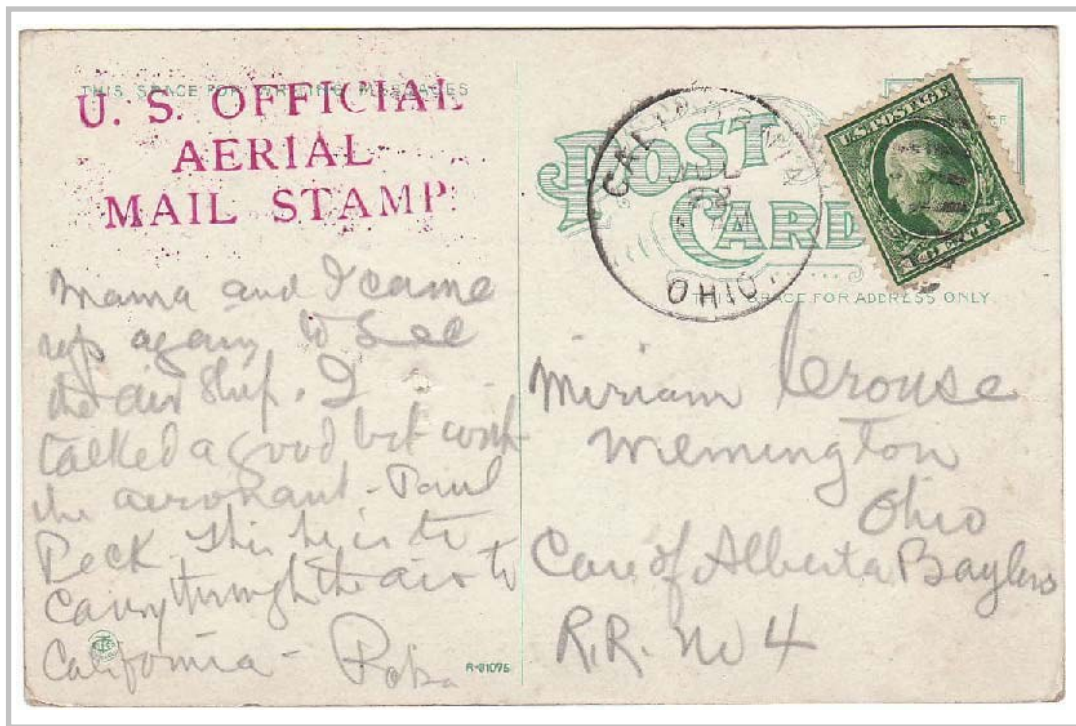 THIS SPACE FOR WRITING MESSAGES
U. S. OFFICIAL
AERIAL
MAIL STAMP.
Mama and I came
up again to See
the air Ship. I
talked a good bit with
the aeronaut - Paul
Peck. This he is to
carry through the air to
California -
R-81075
POST
CARD
OHIO
U.S. POSTAGE
THIS SPACE FOR ADDRESS ONLY
Miriam Crouse
Wilmington
Ohio
Care of Alberta
R.R. No 4